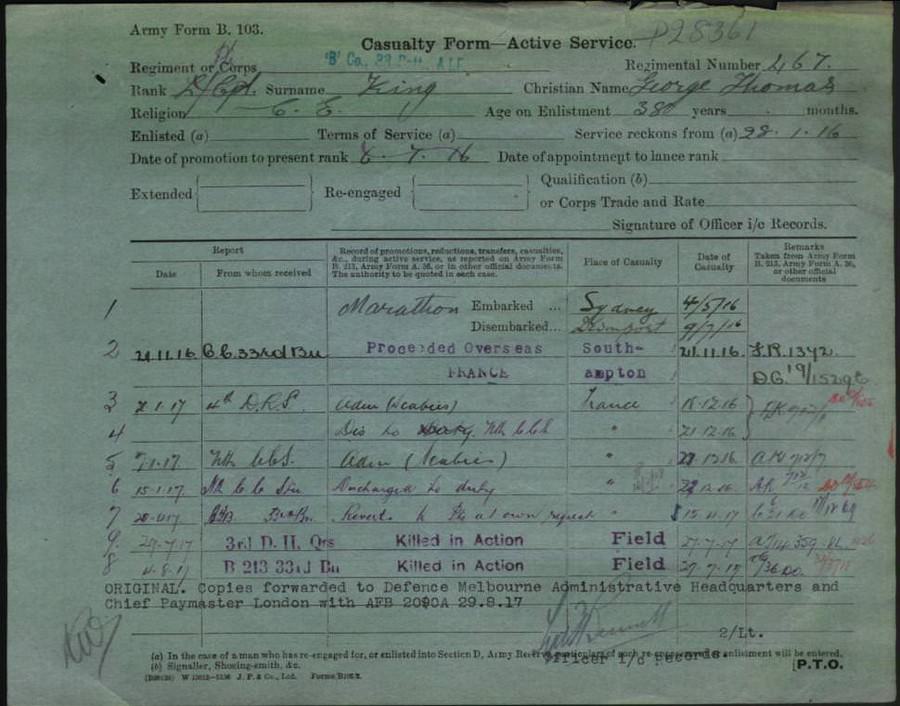 Army Form B. 103.
P28361
Casualty Form—Active Service.
Regiment or Corps 'B' Co. Regimental Number 467.
Rank L/Cpl. Surname King Christian Name George Thomas
Religion C. E. Age on Enlistment 38 years months.
Enlisted (a) Terms of Service (a) Service reckons from (a) 28.1.16
Date of promotion to present rank 6.7.16 Date of appointment to lance rank
Extended Re-engaged Qualification (b)
or Corps Trade and Rate
Signature of Officer i/c Records.
Report Record of promotions, reductions, transfers, casualties, &c., during active service, as reported on Army Form B. 213, Army Form A. 36, or in other official documents. The authority to be quoted in each case. Place of Casualty Date of Casualty Remarks Taken from Army Form B. 213, Army Form A. 36, or other official documents
Date From whom received
1 Marathon Embarked ... Sydney 4/5/16
Disembarked... Devonport 9/7/16
2 21.11.16 33rd Bn Proceeded Overseas South- 21.11.16.
FRANCE ampton
3 2.1.17 4th D.R.S. Adm (Scabies) France 18.12.16
4 Dis to C.C.S " 21.12.16
5 7.1.17 C.C.S. Adm (Scabies) "
6 15.1.17 Discharged to duty "
7 Revert to Pte at own request "
9 27.7.17 3rd D. H. Qrs Killed in Action Field 27.7.17
8 4.8.17 B 213 33rd Bn Killed in Action Field 27.7.17
ORIGINAL. Copies forwarded to Defence Melbourne Administrative Headquarters and
Chief Paymaster London with AFB 2090A 29.8.17
2/Lt.
Officer i/c Records.
(a) In the case of a man who has re-engaged for, or enlisted into Section D, Army Reserve, particulars of such re-engagement or enlistment will be entered.
(b) Signaller, Shoeing-smith, &c.
J. P. & Co., Ltd. [P.T.O.